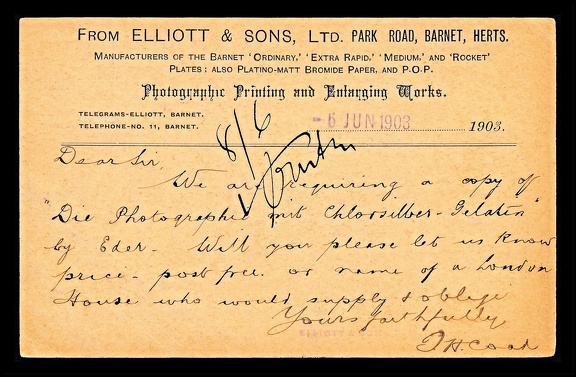 FROM ELLIOTT & SONS, LTD. PARK ROAD, BARNET, HERTS.
MANUFACTURERS OF THE BARNET 'ORDINARY,' 'EXTRA RAPID,' 'MEDIUM,' AND 'ROCKET'
PLATES: ALSO PLATINO-MATT BROMIDE PAPER, AND P.O.P.
Photographic Printing and Enlarging Works.
TELEGRAMS-ELLIOTT, BARNET.
TELEPHONE-NO. 11, BARNET.
8/6
-6 JUN 1903 1903.
Dear Sir,
We are requiring a copy of
"Die Photographie mit Chlorsilber-Gelatin"
by Eder - Will you please let us know
price - post free. or name of a London
House who would supply & oblige
Yours faithfully
H. Cook